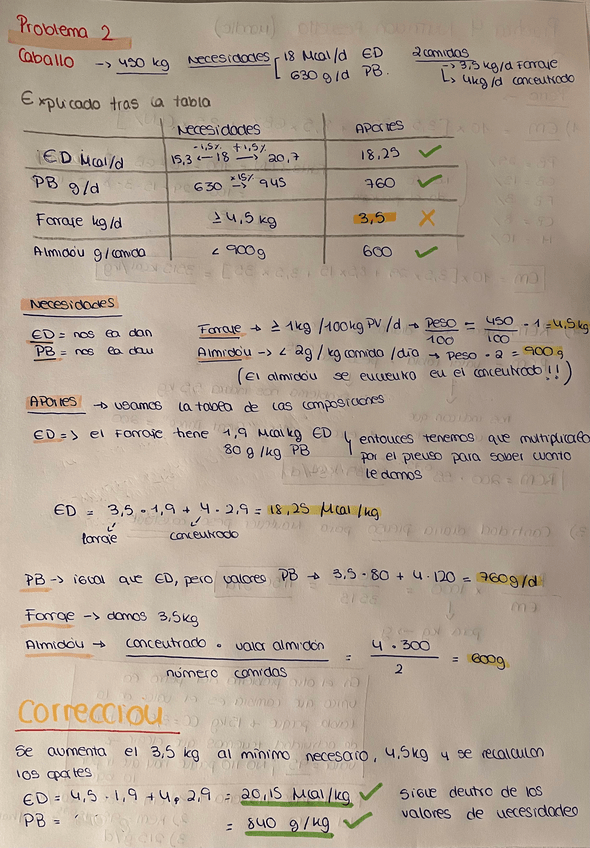 Problema 2
Caballo → 450 kg Necesidades [ 18 Mcal/d ED 2 comidas
630 g/d PB. → 3,5 kg/d Forraje
↳ 4kg/d concentrado
Explicado tras la tabla
Necesidades Aportes
ED Mcal/d 15,3 ←-1,5%— 18 —+1,5%→ 20,7 18,25 ✓
PB g/d 630 ×15%→ 945 760 ✓
Forraje kg/d ≥ 4,5 kg 3,5 X
Almidón g/comida < 900g 600 ✓
Necesidades
ED = nos la dan Forraje → ≥ 1kg /100kg PV / d → Peso/100 = 450/100 · 1 = 4,5 kg
PB = nos la dan Almidón → < 2g / kg comida / día → Peso · 2 = 900 g
(El almidón se encuentra en el concentrado!!)
Aportes → usamos la tabla de las composiciones
ED => el Forraje tiene 1,9 Mcal kg ED y entonces tenemos que multiplicarlo
80 g /kg PB por el pienso para saber cuanto
le damos
ED = 3,5 · 1,9 + 4 · 2,9 = 18,25 Mcal/kg
forraje concentrado
PB → igual que ED, pero valores PB → 3,5 · 80 + 4 · 120 = 760 g/d
Forraje → damos 3,5kg
Almidón → concentrado · valor almidón / número comidas = 4 · 300 / 2 = 600g
Corrección
Se aumenta el 3,5 kg al mínimo necesario, 4,5kg y se recalculan
los aportes
ED = 4,5 · 1,9 + 4 · 2,9 = 20,15 Mcal/kg ✓ sigue dentro de los
PB = " = 840 g/kg ✓ valores de necesidades